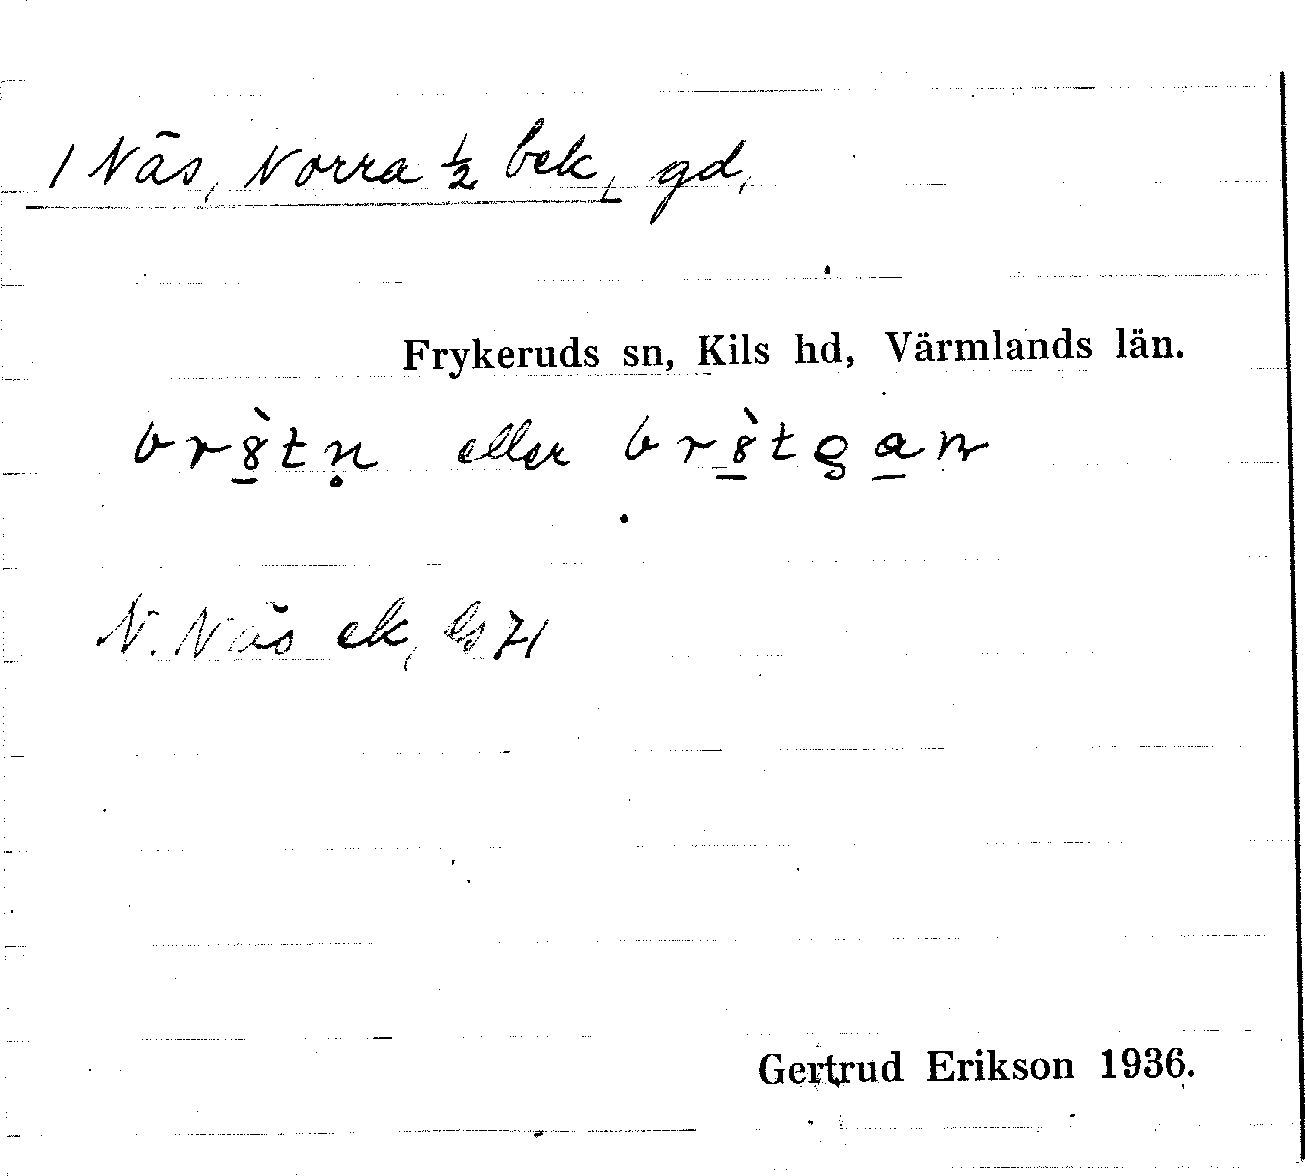 1 Näs, Norra ½ bek, gd,
Frykeruds sn, Kils hd, Värmlands län.
br8̱̀tn̥ eller br8̱̀tga̱n
N. Näs ek, Gs 71
Gertrud Erikson 1936.